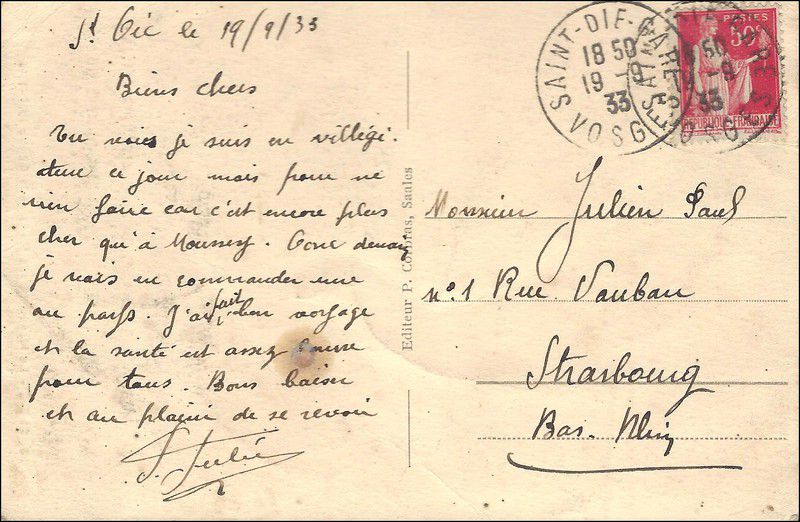 St Dié le 19/9/33
Biens chers
Tu vois je suis en villégi
ature ce jour mais pour ne
rien faire car c'est encore plus
cher qu'à Moussey. Donc demain
je vais en commander une
au pays. J'ai fait bon voyage
et la santé est assez bonne
pour tous. Bons baisers
et au plaisir de se revoir
Editeur P. Corbras, Saales
SAINT-DIE-GARE
18 50
19 -9
33
VOSGES
POSTES
50c
REPUBLIQUE FRANÇAISE
Monsieur Julien Paul
n°1 Rue Vauban
Strasbourg
Bas-Rhin